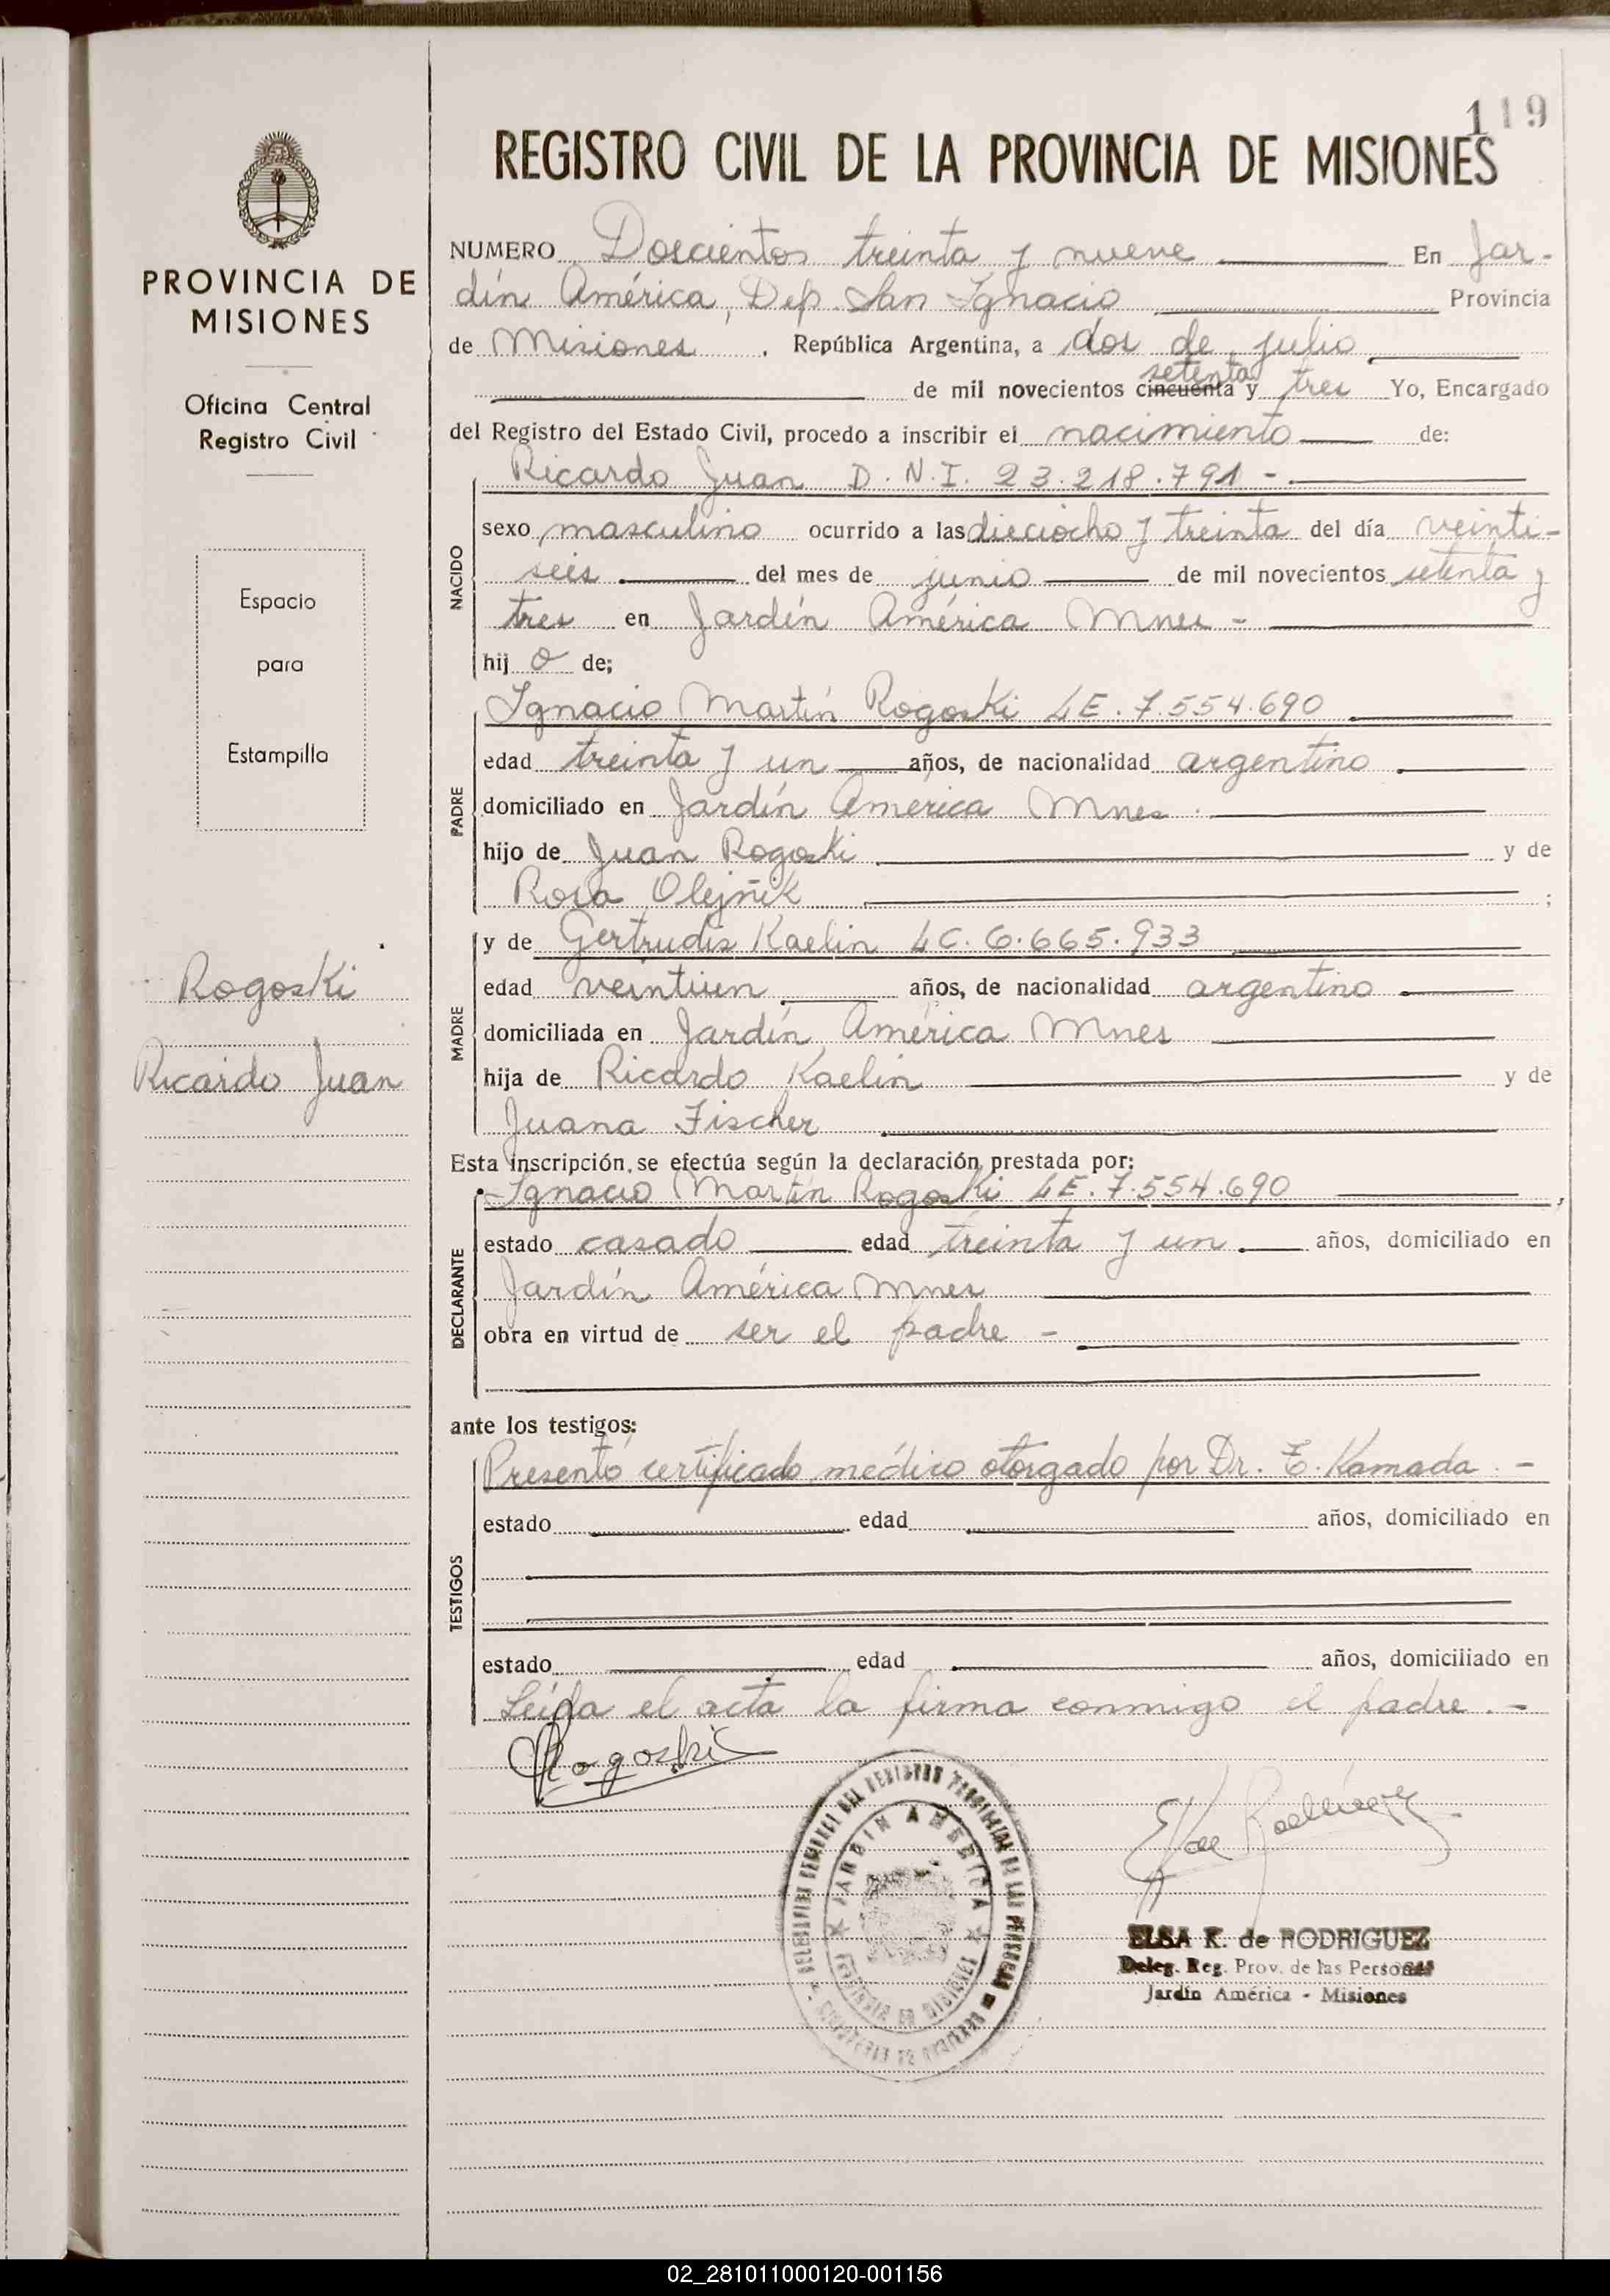 119
REGISTRO CIVIL DE LA PROVINCIA DE MISIONES
PROVINCIA DE
MISIONES
Oficina Central
Registro Civil
Espacio
para
Estampilla
Rogoski
Ricardo Juan
NUMERO Doscientos treinta y nueve En Jar-
dín América, Dep. San Ignacio Provincia
de Misiones . República Argentina, a dos de julio
setenta
de mil novecientos cincuenta y tres Yo, Encargado
del Registro del Estado Civil, procedo a inscribir el nacimiento de:
NACIDO
Ricardo Juan D.N.I. 23.218.791 -
sexo masculino ocurrido a las dieciocho y treinta del día veinti-
seis del mes de junio de mil novecientos setenta y
tres en Jardín América Mnes -
hij o de;
PADRE
Ignacio Martín Rogoski LE. 7.554.690
edad treinta y un años, de nacionalidad argentino
domiciliado en Jardín América Mnes.
hijo de Juan Rogoski y de
Rosa Olejñik ;
MADRE
y de Gertrudis Kaelin LC. 6.665.933
edad veintiun años, de nacionalidad argentino
domiciliada en Jardín América Mnes
hija de Ricardo Kaelin y de
Juana Fischer
Esta inscripción se efectúa según la declaración prestada por:
DECLARANTE
Ignacio Martín Rogoski LE. 7.554.690 ,
estado casado edad treinta y un años, domiciliado en
Jardín América Mnes
obra en virtud de ser el padre -
ante los testigos:
TESTIGOS
Presentó certificado médico otorgado por Dr. E. Kamada. -
estado edad años, domiciliado en
estado edad años, domiciliado en
Leída el acta la firma conmigo el padre. -
Rogoski
JARDIN AMERICA
PROVINCIA DE MISIONES
ELSA K. de RODRIGUEZ
Deleg. Reg. Prov. de las Personas
Jardín América - Misiones
02_281011000120-001156